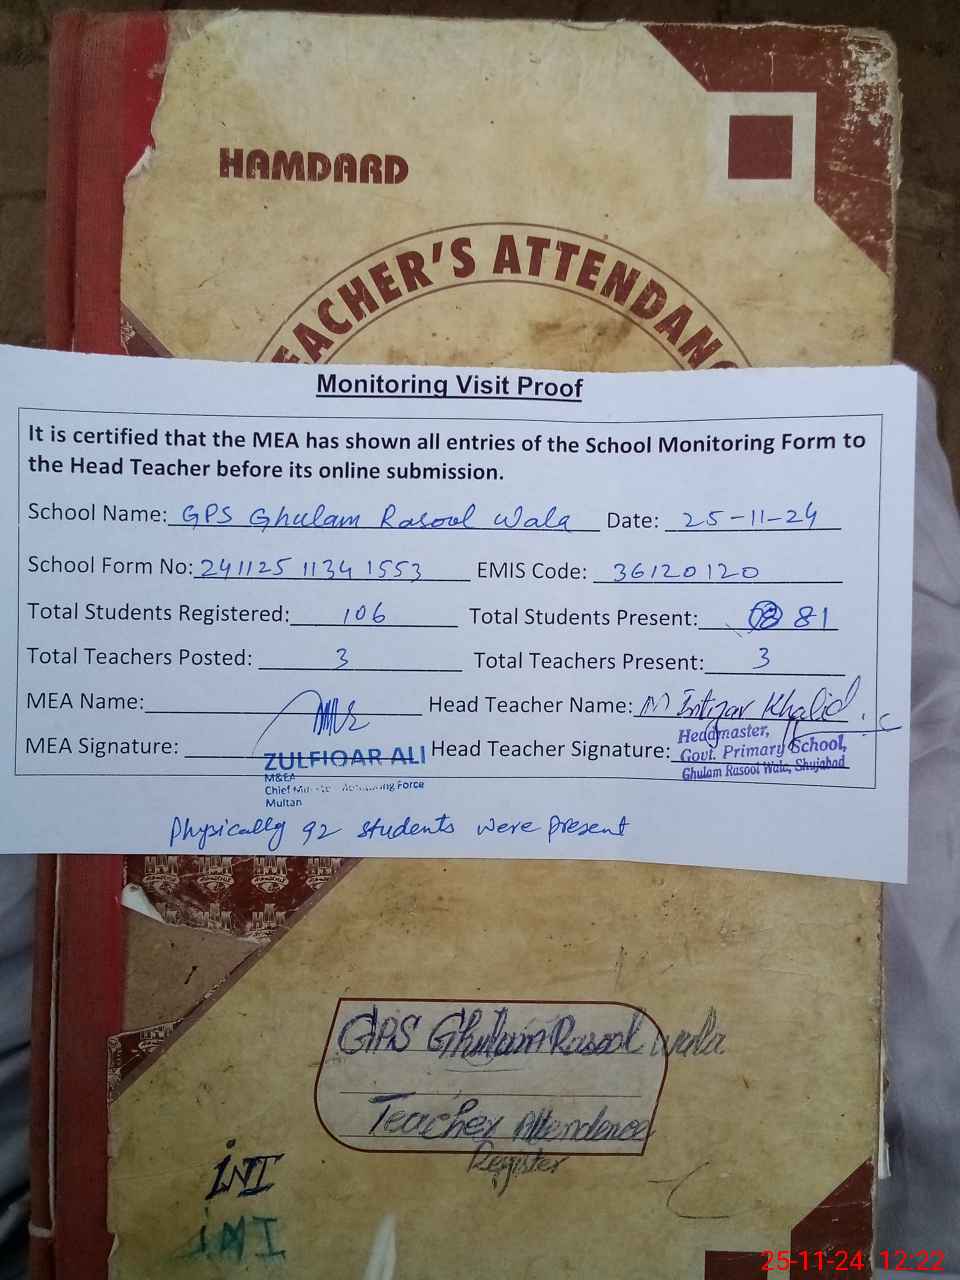 HAMDARD
TEACHER'S ATTENDANC
Monitoring Visit Proof
It is certified that the MEA has shown all entries of the School Monitoring Form to
the Head Teacher before its online submission.
School Name: GPS Ghulam Rasool Wala Date: 25-11-24
School Form No: 241125 1134 1553 EMIS Code: 36120120
Total Students Registered: 106 Total Students Present: 81
Total Teachers Posted: 3 Total Teachers Present: 3
MEA Name: Head Teacher Name: M Intizar Khalid
MEA Signature: Head Teacher Signature:
ZULFIQAR ALI
M&EA
Chief Monitoring Force
Multan
Headmaster,
Govt. Primary School,
Ghulam Rasool Wala, Shujabad
Physically 92 students were present
GPS Ghulam Rasool wala
Teacher Attendance
Register
iNI
iMI
25-11-24 12:22